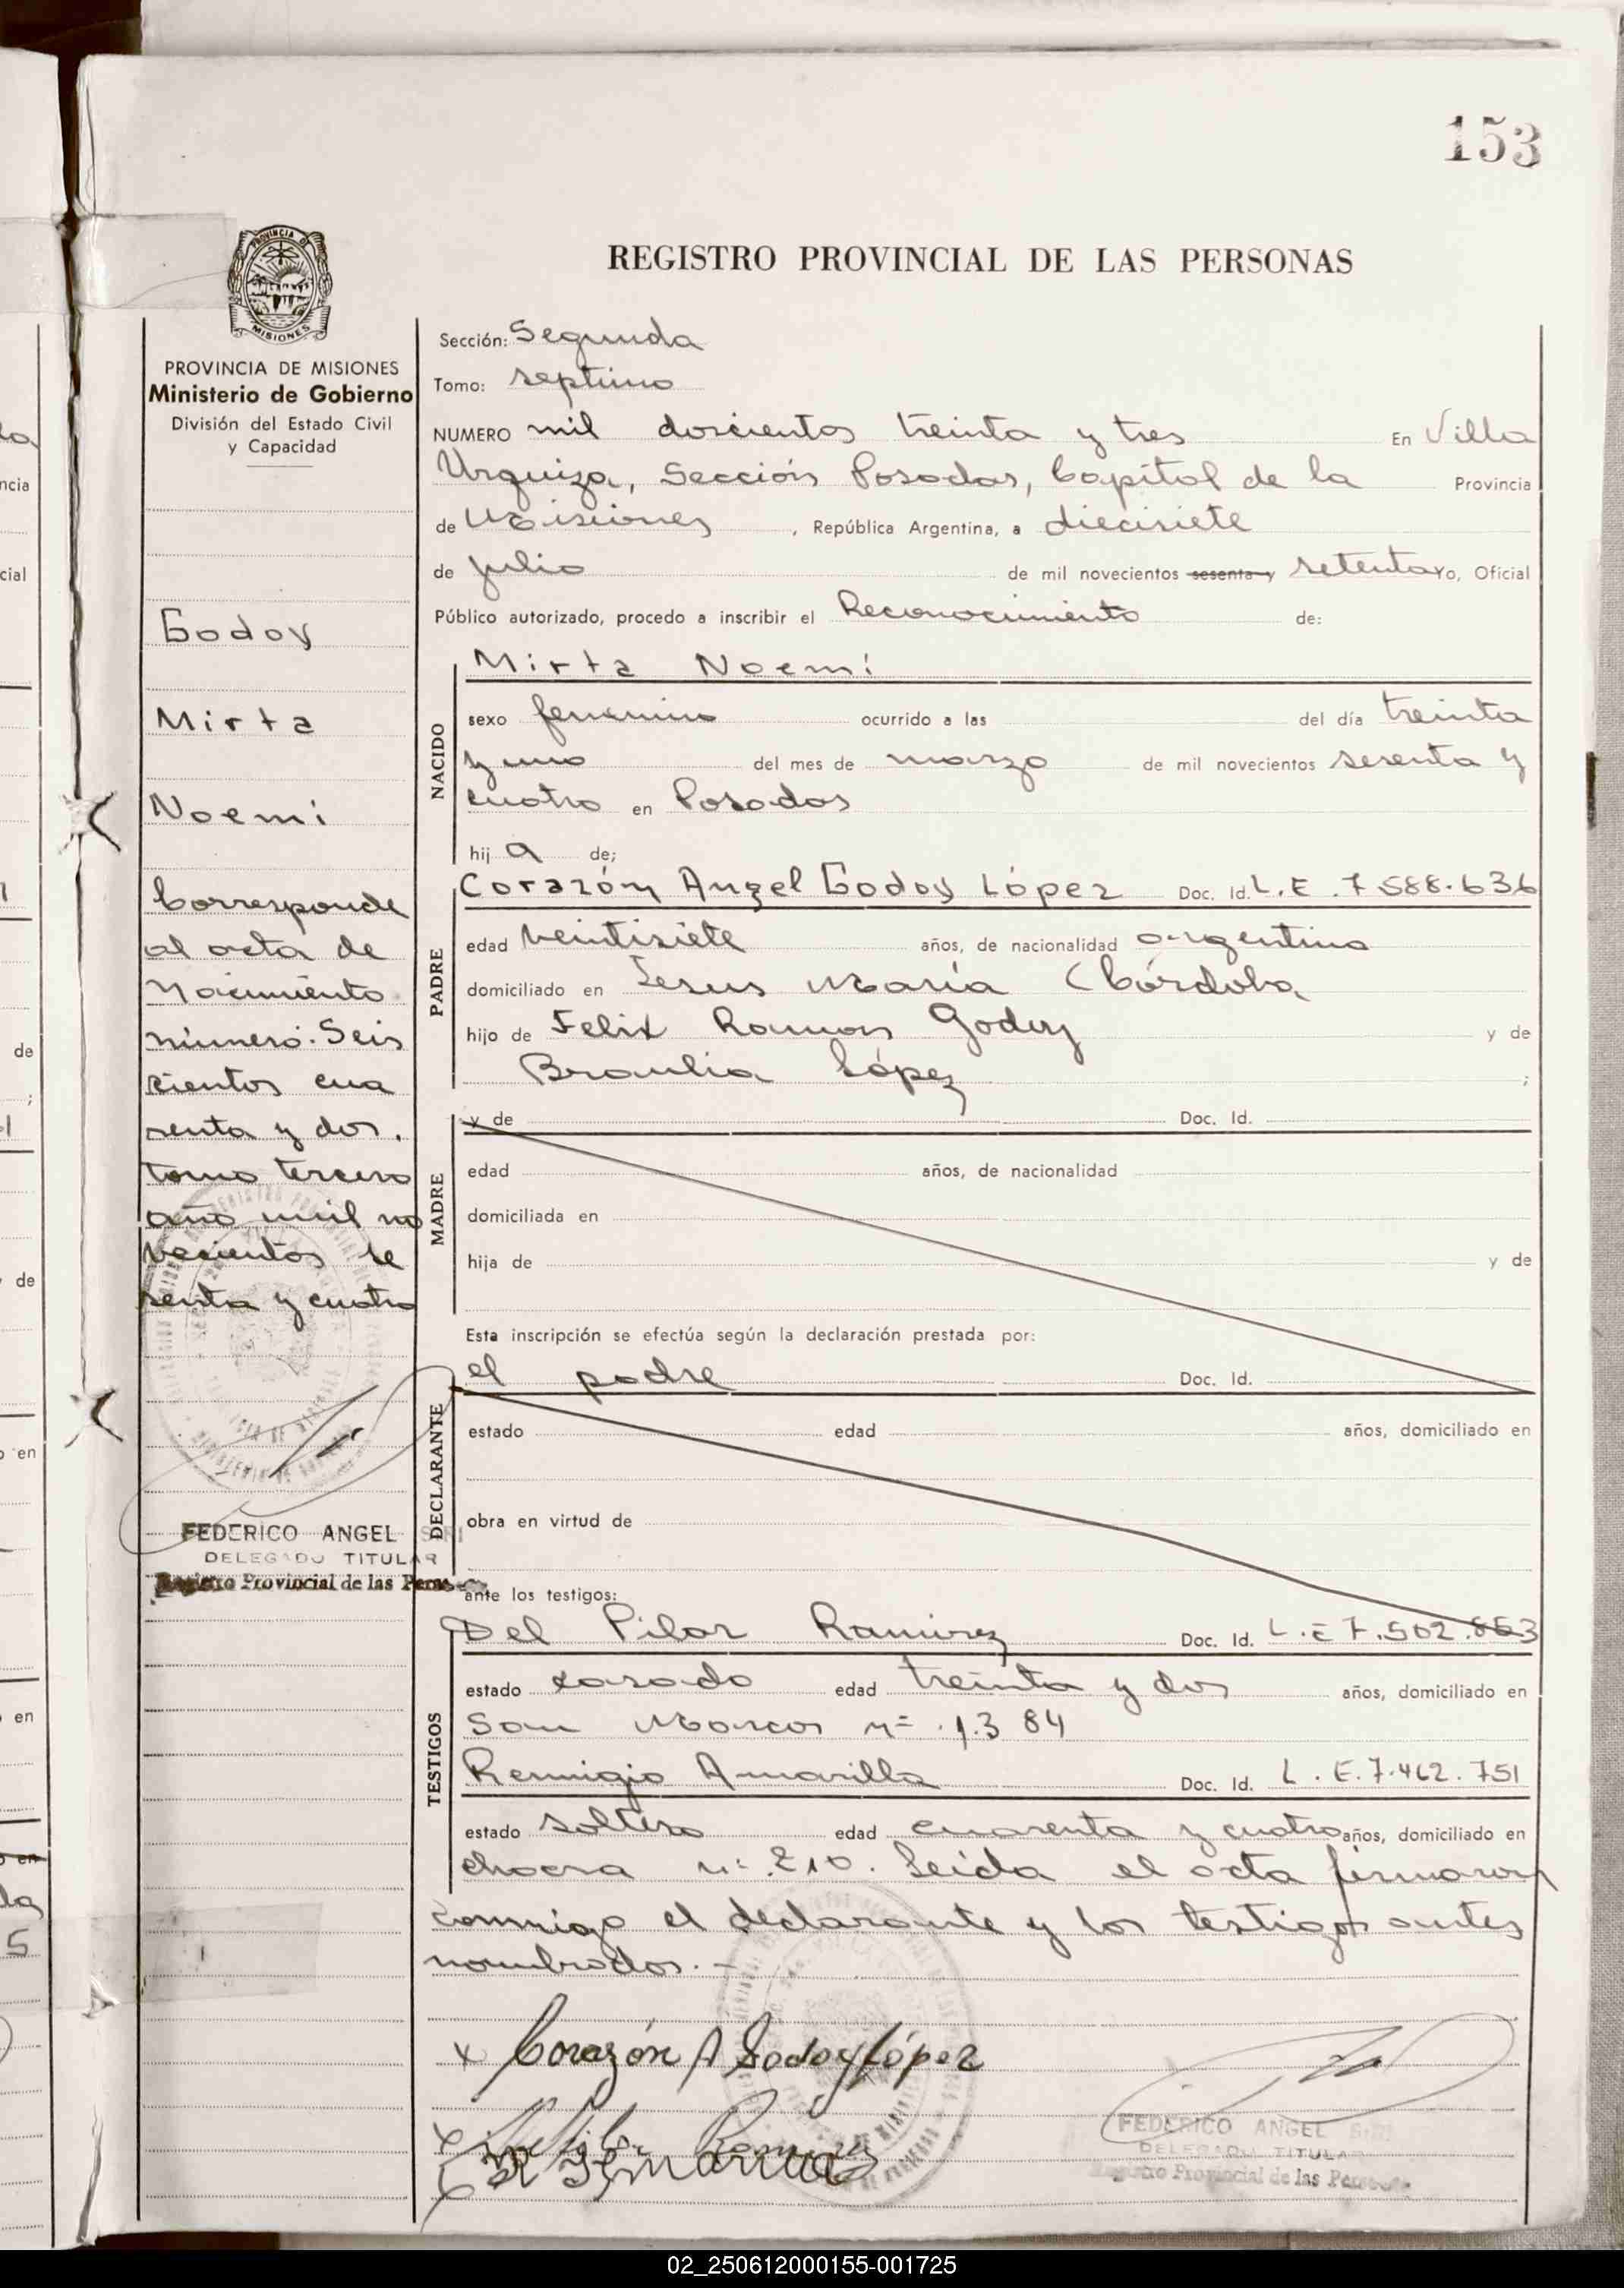 153
REGISTRO PROVINCIAL DE LAS PERSONAS
PROVINCIA DE
MISIONES
PROVINCIA DE MISIONES
Ministerio de Gobierno
División del Estado Civil
y Capacidad
Godoy
Mirta
Noemi
Corresponde
al acta de
Nacimiento
número: Seis
cientos cua
renta y dos.
tomo tercero
año mil no
vecientos se
senta y cuatro
FEDERICO ANGEL
DELEGADO TITULAR
Registro Provincial de las Personas
Sección: Segunda
Tomo: septimo
NUMERO mil doscientos treinta y tres En Villa
Urquiza, Sección Posadas, Capital de la Provincia
de Misiones, República Argentina, a diecisiete
de julio de mil novecientos sesenta y setenta Yo, Oficial
Público autorizado, procedo a inscribir el Reconocimiento de:
NACIDO
Mirta Noemi
sexo femenino ocurrido a las del día treinta
y uno del mes de marzo de mil novecientos sesenta y
cuatro en Posadas
hij a de;
PADRE
Corazón Angel Godoy López Doc. Id. L.E. 7.588.636
edad veintisiete años, de nacionalidad argentino
domiciliado en Jesus María (Córdoba
hijo de Felix Ramon Godoy y de
Braulia López ;
MADRE
y de Doc. Id.
edad años, de nacionalidad
domiciliada en
hija de y de
Esta inscripción se efectúa según la declaración prestada por:
DECLARANTE
el padre Doc. Id.
estado edad años, domiciliado en
obra en virtud de
ante los testigos:
TESTIGOS
Del Pilar Ramirez Doc. Id. L.E 7.502.863
estado casado edad treinta y dos años, domiciliado en
San Marcos n= 1.384
Remigio Amarilla Doc. Id. L.E.7.462.751
estado soltero edad cuarenta y cuatro años, domiciliado en
chacra n=.210. Leída el acta firmaron
conmigo el declarante y los testigos antes
nombrados.-
x Corazón A Godoy López
FEDERICO ANGEL
DELEGADO TITULAR
Registro Provincial de las Personas
02_250612000155-001725